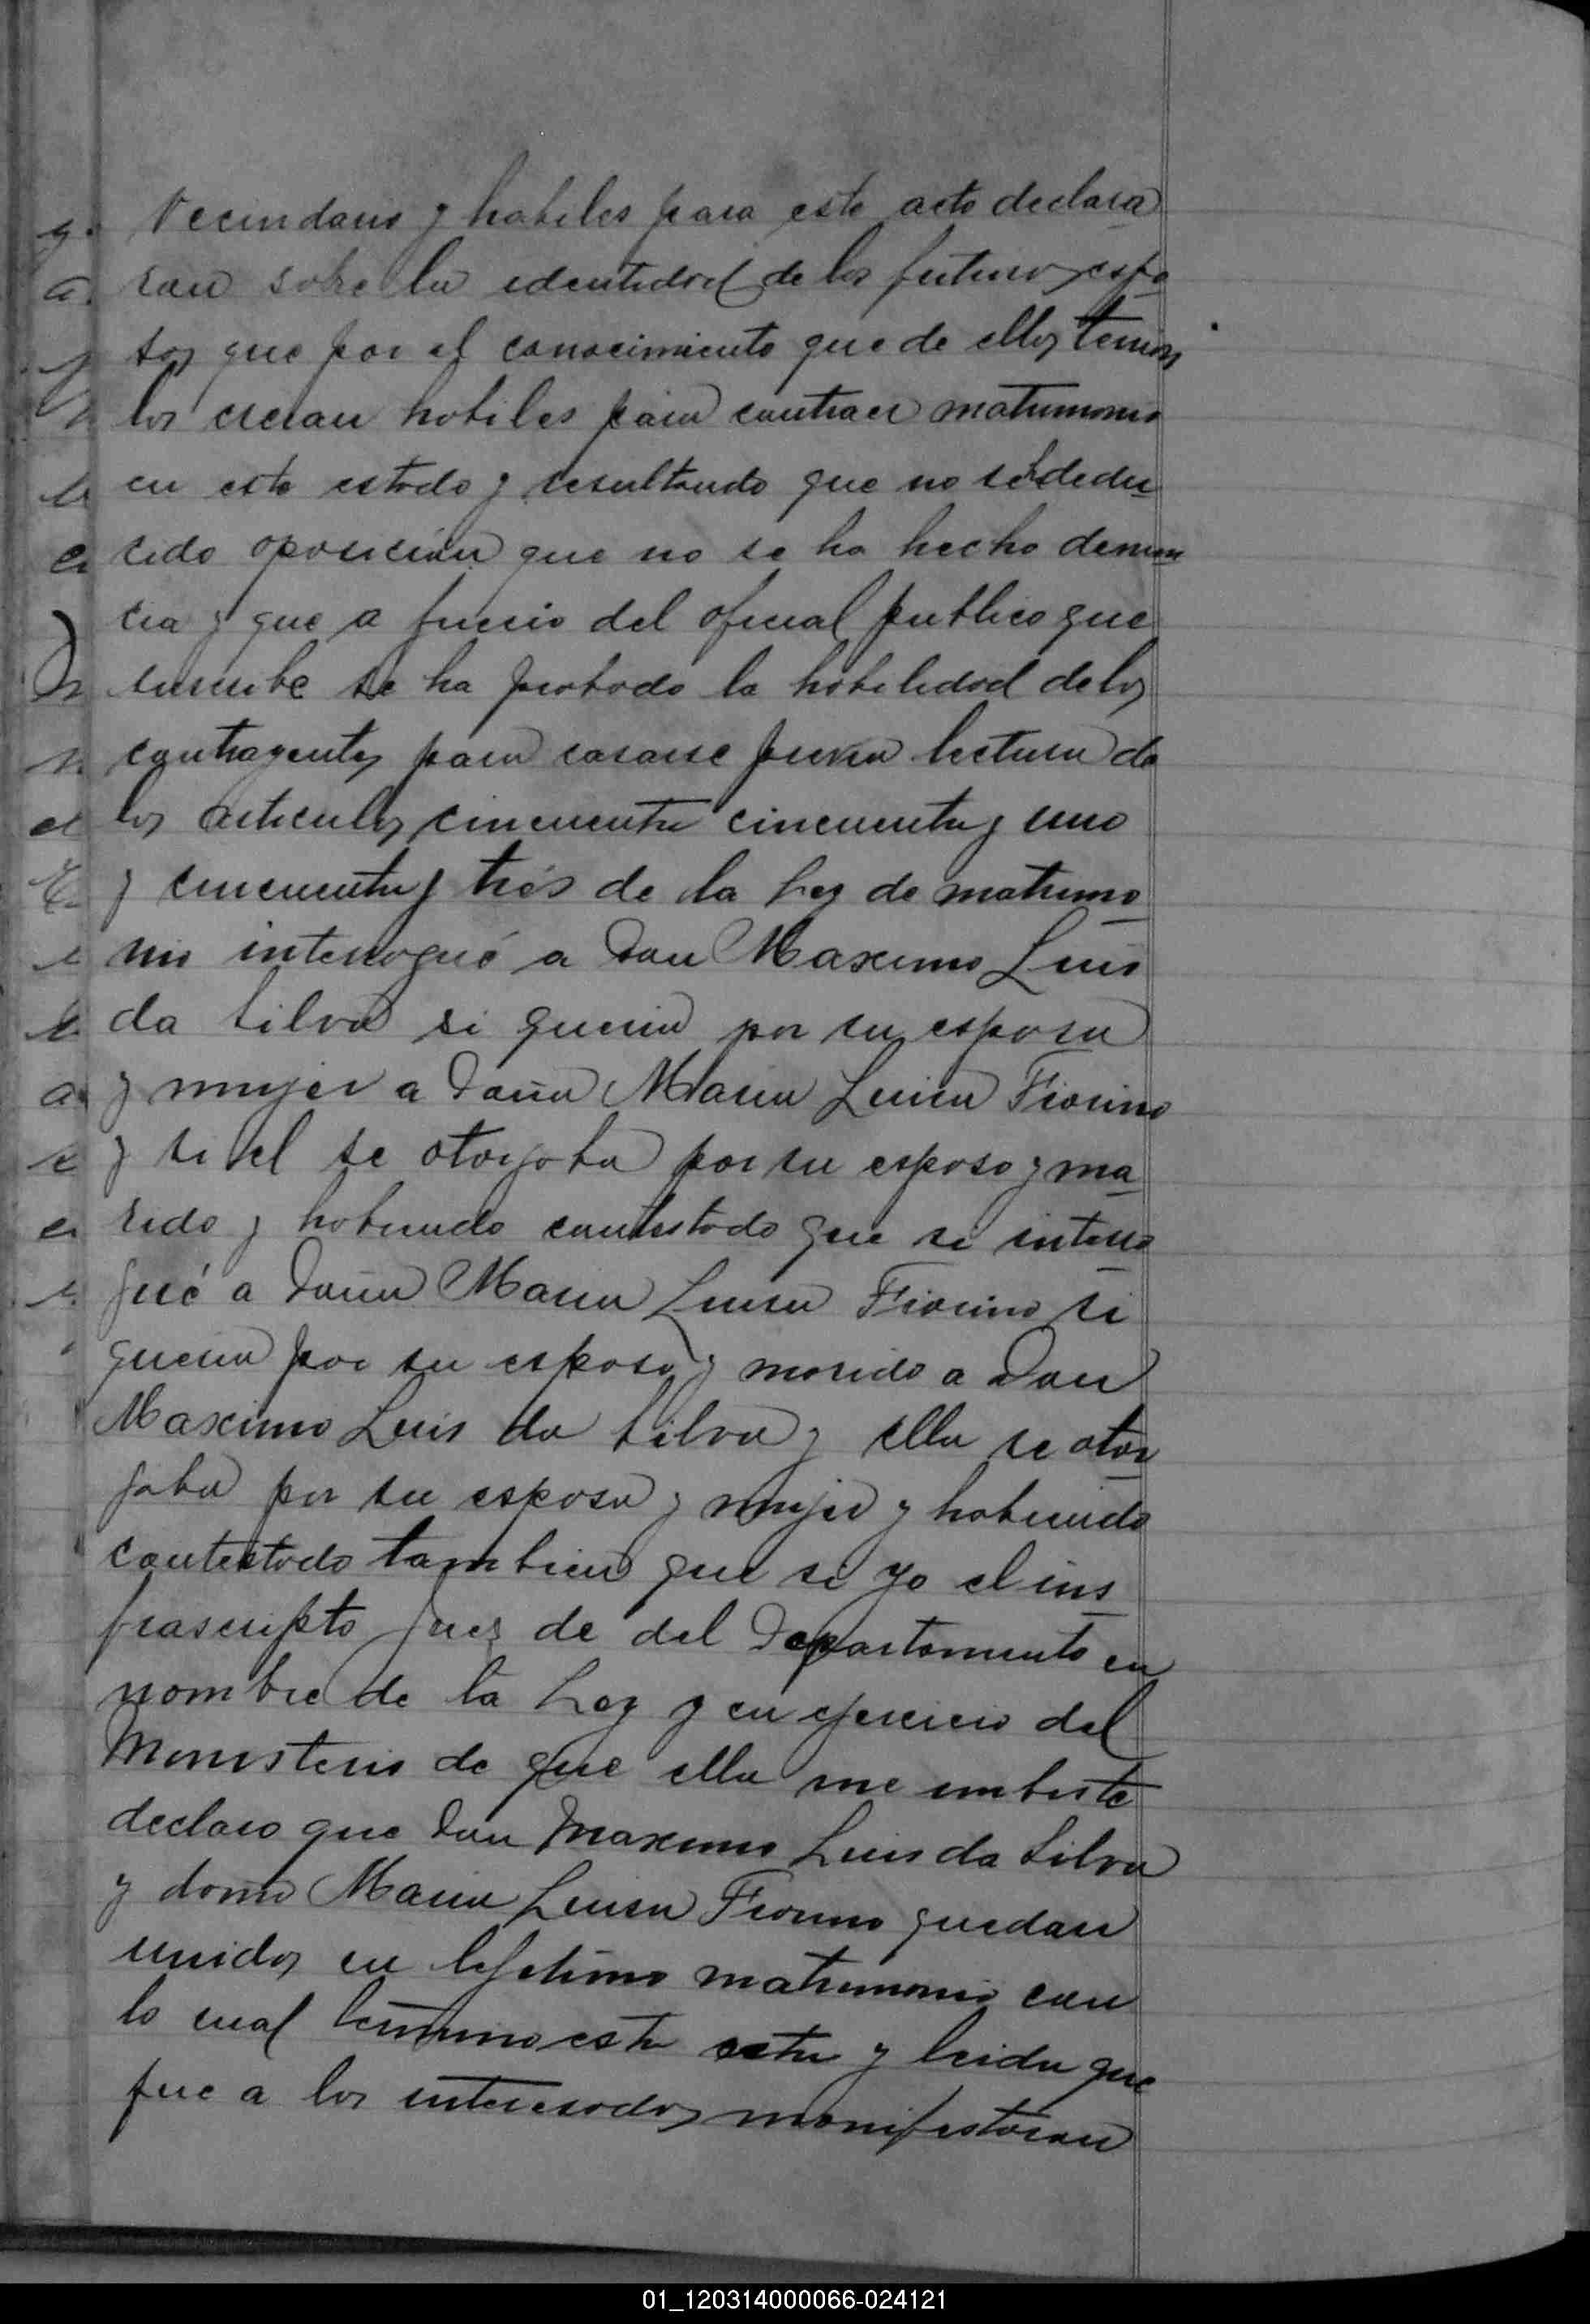 Vecindario y habiles para este acto declara
ran sobre la identidad de los futuros espo
sos que por el conocimiento que de ellos tenian
los creian habiles para contraer matrimonio
en este estado y resultando que no se ha dedu
cido oposicion que no se ha hecho denun
cia y que a juicio del oficial publico que
suscribe se ha probado la habilidad de los
contrayentes para casarse previa lectura de
los articulos cincuenta cincuenta y uno
y cincuenta y tres de la Ley de matrimo
nio interrogué a Don Maximo Luis
da Silva si queria por su esposa
y mujer a Doña Maria Luisa Fiorino
y si el se otorgaba por su esposo y ma
rido y habiendo contestado que si interro
gué a Doña Maria Luisa Fiorino si
queria por su esposo y marido a Don
Maximo Luis da Silva y ella se otor
gaba por su esposa y mujer y habiendo
contestado tambien que si yo el ins
frascripto Juez de del Departamento en
nombre de la Ley y en ejercicio del
Monisterio de que ella me imbiste
declaro que Don Maximo Luis da Silva
y doña Maria Luisa Fiorino quedan
unidos en lejitimo matrimonio con
lo cual termino esta acta y leida que
fue a los interesados manifestaron
01_120314000066-024121